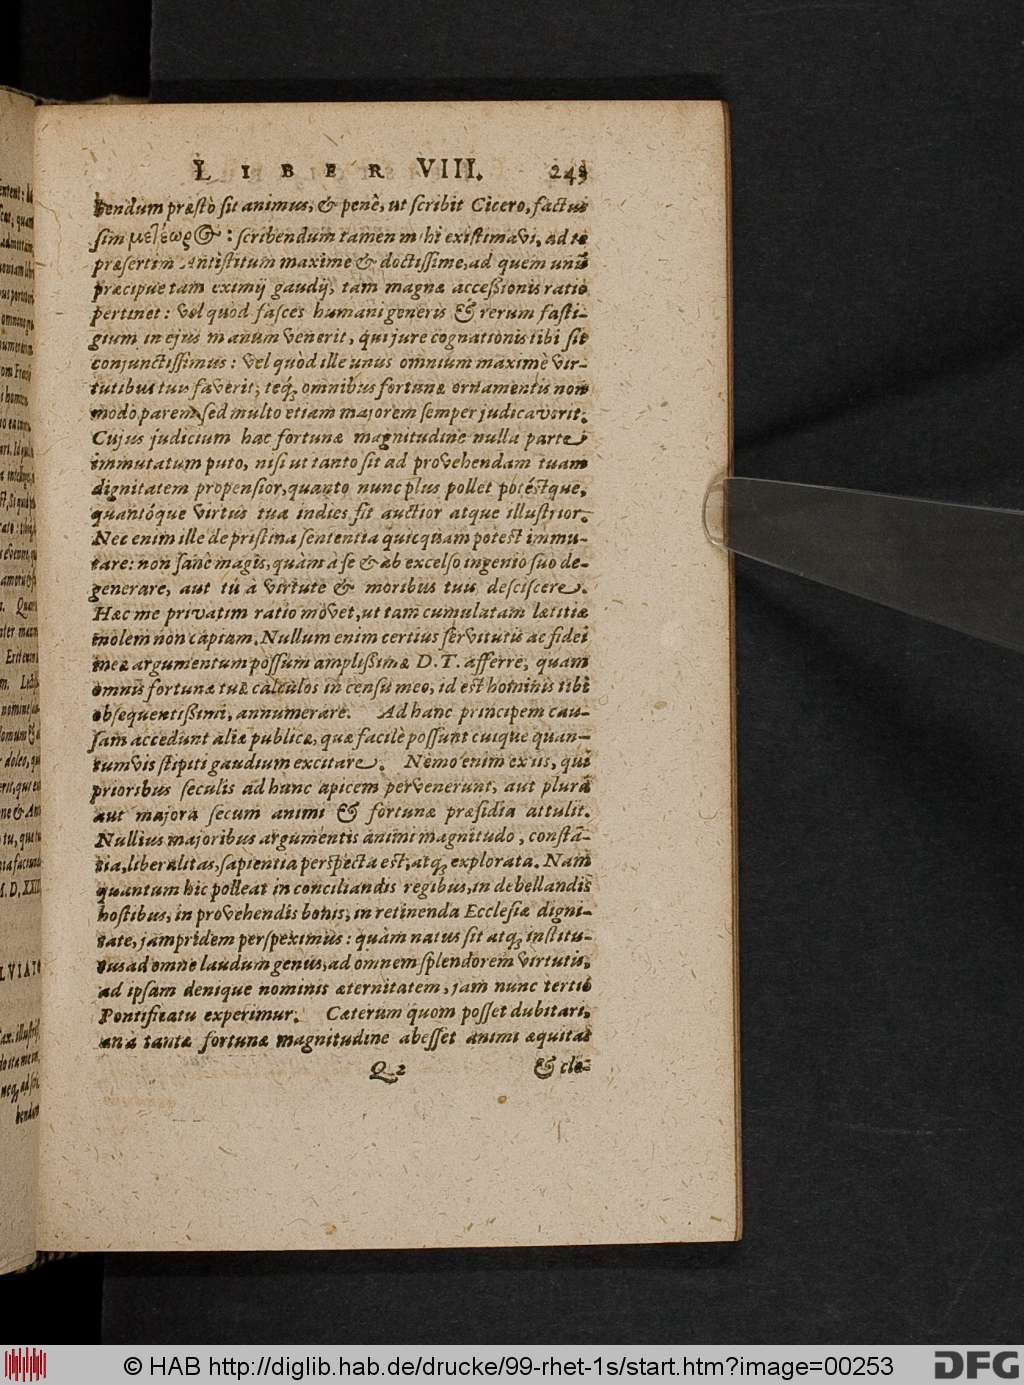 LIBER VIII. 243
bendum præstò sit animus, & penè, ut scribit Cicero, factus
sim μετέωρος : scribendum tamen mihi existimavi, ad te
præsertim Antistitum maxime & doctissime, ad quem unū
præcipue tam eximij gaudij, tam magnæ accessionis ratio
pertinet : vel quòd fasces humani generis & rerum fasti-
gium in ejus manum venerit, qui jure cognationis tibi sit
conjunctissimus : vel quòd ille unus omnium maximè vir-
tutibus tuis faverit, teq; omnibus fortunæ ornamentis non
modò parem, sed multo etiam majorem semper judicaverit.
Cujus judicium hac fortunæ magnitudine nulla parte
immutatum puto, nisi ut tanto sit ad provehendam tuam
dignitatem propensior, quanto nunc plus pollet potéstque,
quantóque virtus tua indies fit auctior atque illustrior.
Nec enim ille de pristina sententia quicquam potest immu-
tare: non sanè magis, quàm à se & ab excelso ingenio suo de-
generare, aut tu à virtute & moribus tuis desciscere.
Hæc me privatim ratio movet, ut tam cumulatam lætitiæ
molem non captam. Nullum enim certius servitutis ac fidei
meæ argumentum possum amplissimæ D. T. afferre, quam
omnis fortunæ tuæ calculos in censu meo, id est hominis tibi
obsequentissimi, annumerare. Ad hanc principem cau-
sam accedunt aliæ publicæ, quæ facilè possunt cuique quan-
tumvis stipiti gaudium excitare. Nemo enim ex iis, qui
prioribus seculis ad hanc apicem pervenerunt, aut plura
aut majora secum animi & fortunæ præsidia attulit.
Nullius majoribus argumentis animi magnitudo, constā-
tia, liberalitas, sapientia perspecta est, atq; explorata. Nam
quantum hic polleat in conciliandis regibus, in debellandis
hostibus, in provehendis bonis, in retinenda Ecclesiæ digni-
tate, jampridem perspeximus : quàm natus sit atq; institu-
tus ad omne laudum genus, ad omnem splendorem virtutis,
ad ipsam denique nominis æternitatem, jam nunc tertio
Pontificatu experimur. Cæterum quom posset dubitari,
an à tanta fortunæ magnitudine abesset animi æquitas
Q 2 & cle-
© HAB http://diglib.hab.de/drucke/99-rhet-1s/start.htm?image=00253 DFG